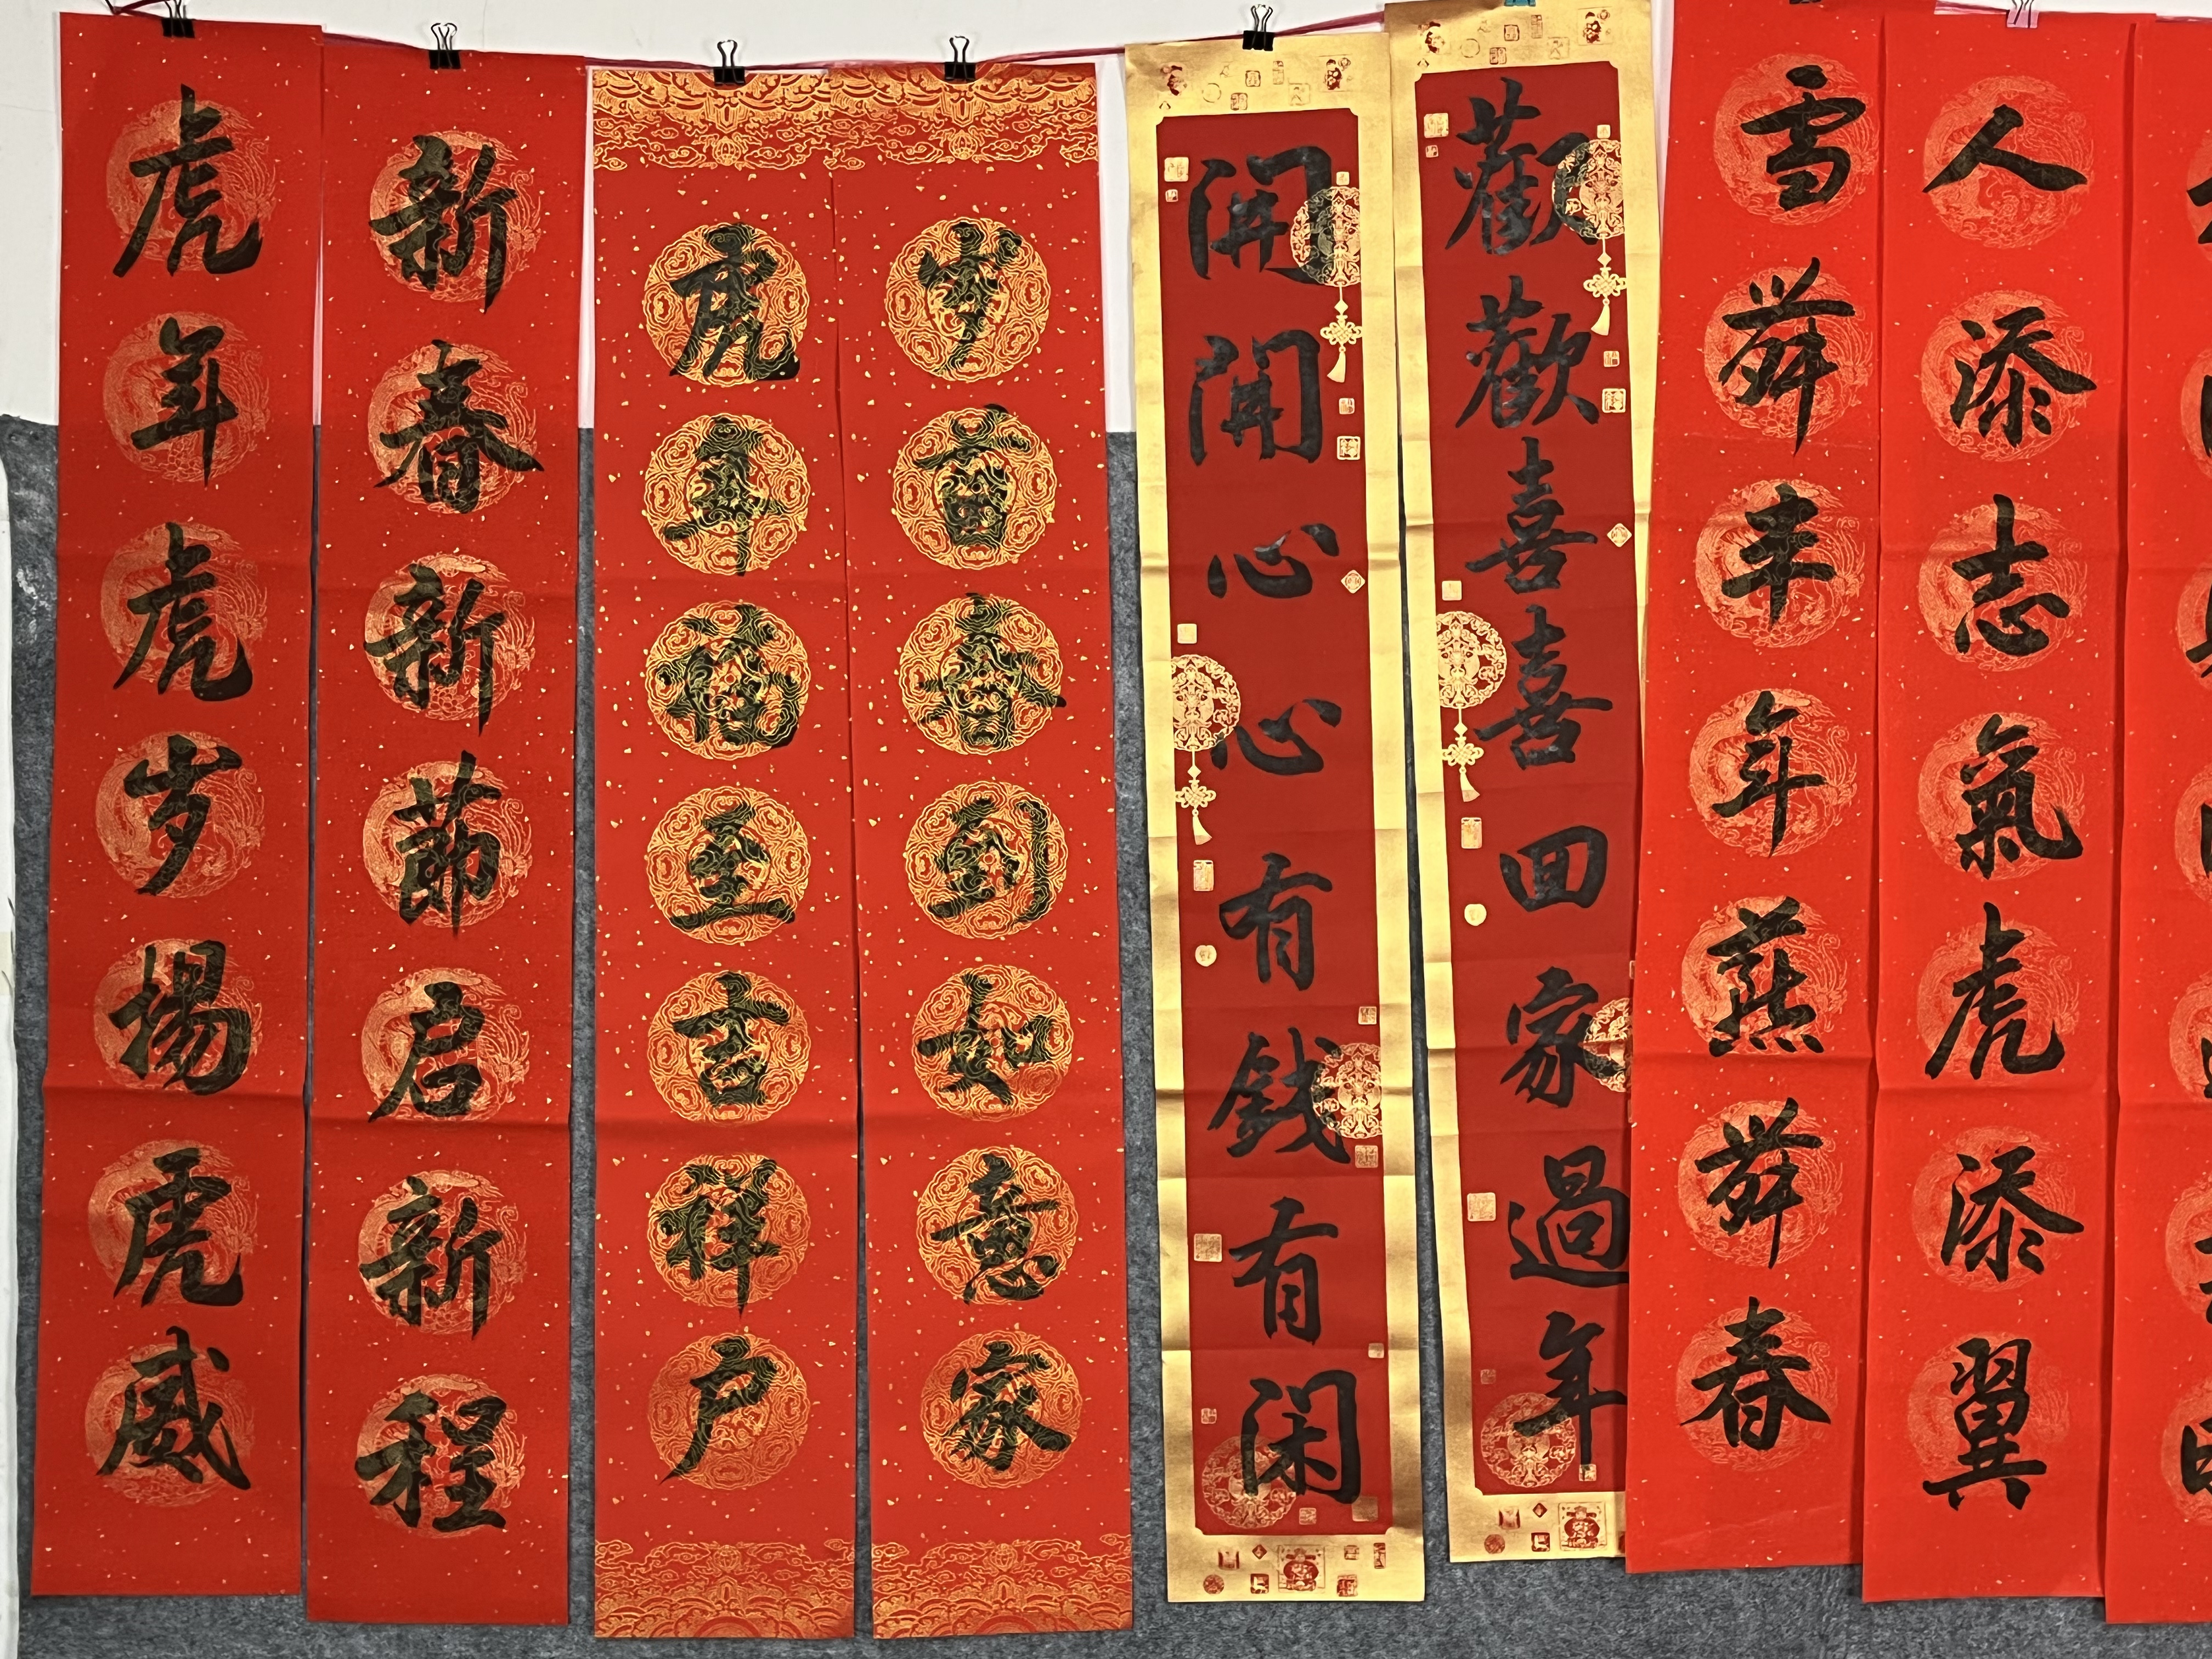 人添志氣虎添翼
雪舞丰年燕舞春
歡歡喜喜回家過年
開開心心有錢有闲
岁首春到如意家
虎年福至吉祥户
新春新節启新程
虎年虎岁揚虎威